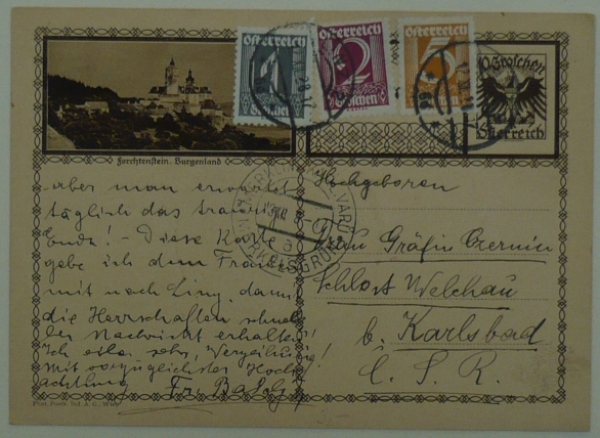 Österreich
1
Groschen
Österreich
2
Groschen
Österreich
5
Groschen
10 Groschen
Österreich
Forchtenstein, Burgenland
aber man erwartet
täglich das traurige
Ende! - Diese Karte
gebe ich dem
mit nach Linz, damit
die Herrschaften schnell
Nachricht erhalten!
Ich eile sehr, Verzeihung!
Mit vorzüglichster Hoch-
achtung Fr.
Hochgeboren
Frau Gräfin Czernin
Schlost Welchau
b. Karlsbad
Č. S. R.